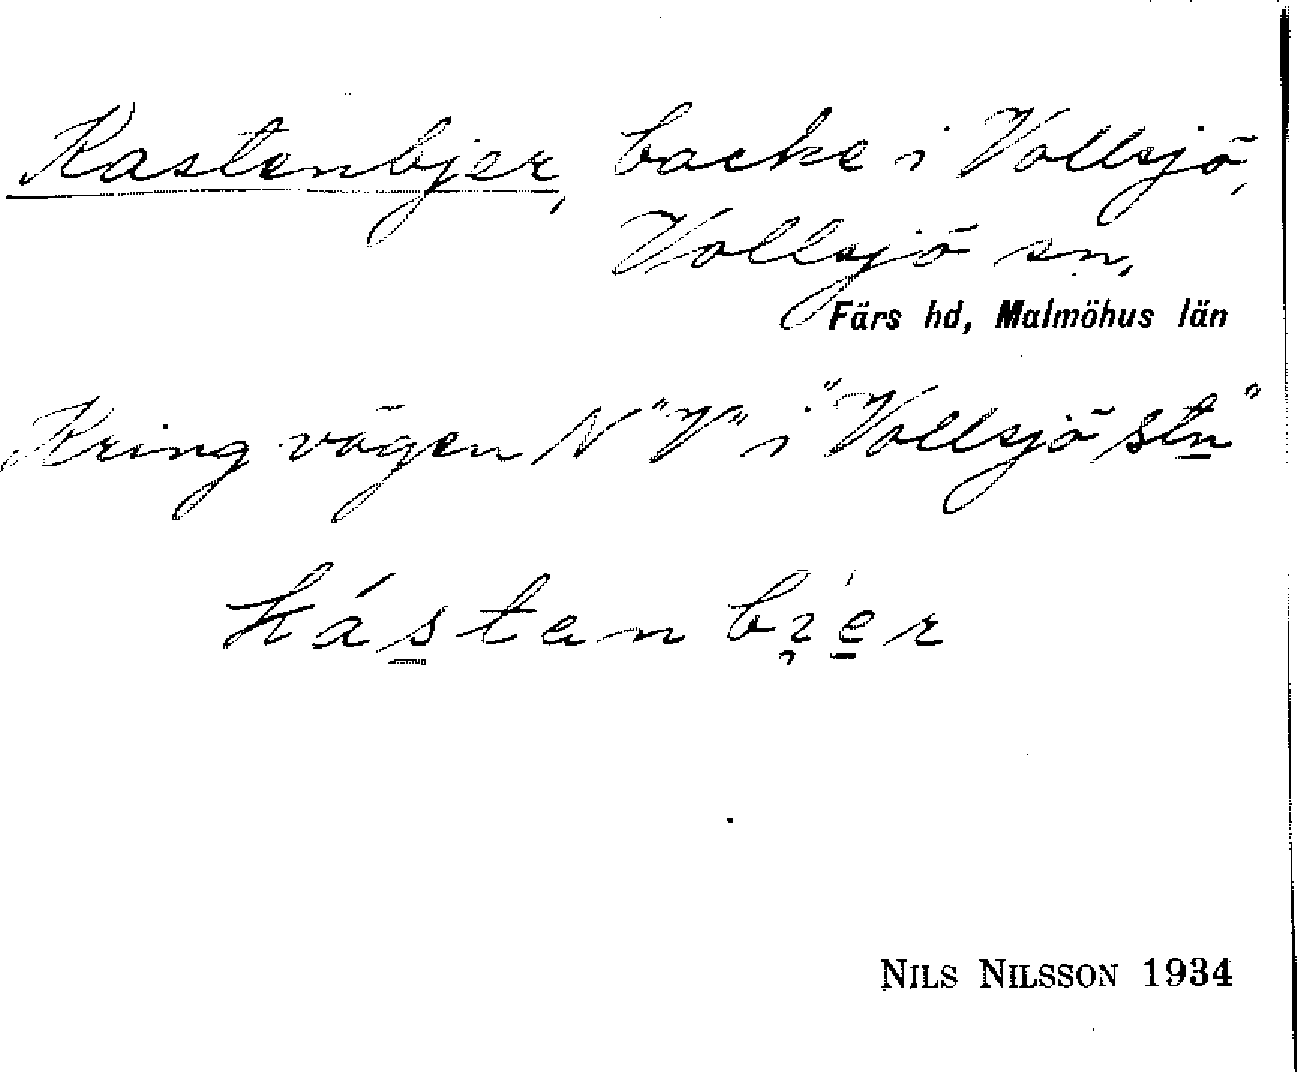 Kastenbjer, backe i Vollsjö,
Vollsjö sn.
Färs hd, Malmöhus län
Kring vägen N "V" i "Vollsjö stn"
kástanbi̯er
NILS NILSSON 1934